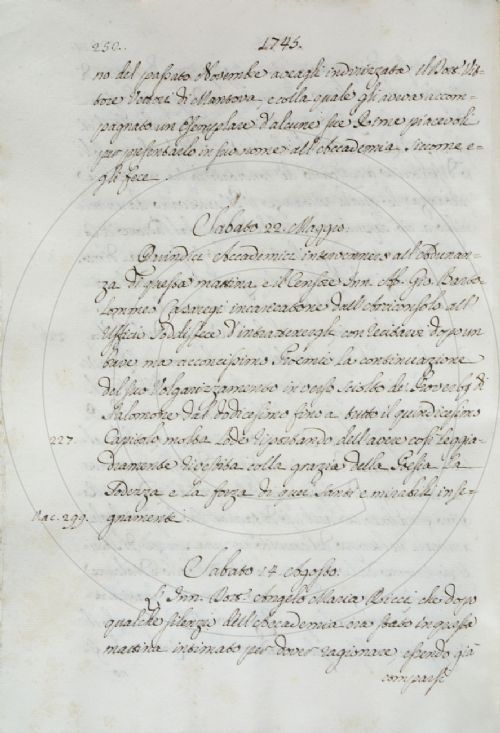 250.
1745.
no del passato Novembre avergli indirizzata il Dott. Vet-
tore Vettori di Mantova, e colla quale gli aveva accom-
pagnato un Esemplare d'alcune sue Rime piacevoli
per presentarlo in suo nome all'Accademia, siccome e-
gli fece.
Sabato 22. Maggio.
Quindici Accademici intervennero all'Adunan-
za di questa mattina, e il Censore Inn. Ab. Gio. Barto-
lommeo Casaregi incaricatone dall'Arciconsolo all'
Ufficio soddisfece d'intrattenergli, con recitare dopo un
breve ma acconcissimo Proemio la continuazione
del suo Volgarizzamento in verso sciolto de' Proverbj di
Salomone dal dodicesimo fino a tutto il quindicesimo
227.
Capitolo molta lode riportando dell'avere così leggia-
dramente vestita colla grazia della Poesia la
e la forza di quei Santi e mirabili inse-
299.
gnamenti.
Sabato 14. Agosto.
L'Inn. Dott. Angelo Maria Ricci che dopo
qualche silenzo dell'Accademia era stato in questa
mattina intimato per dover ragionare, essendo già
comparse